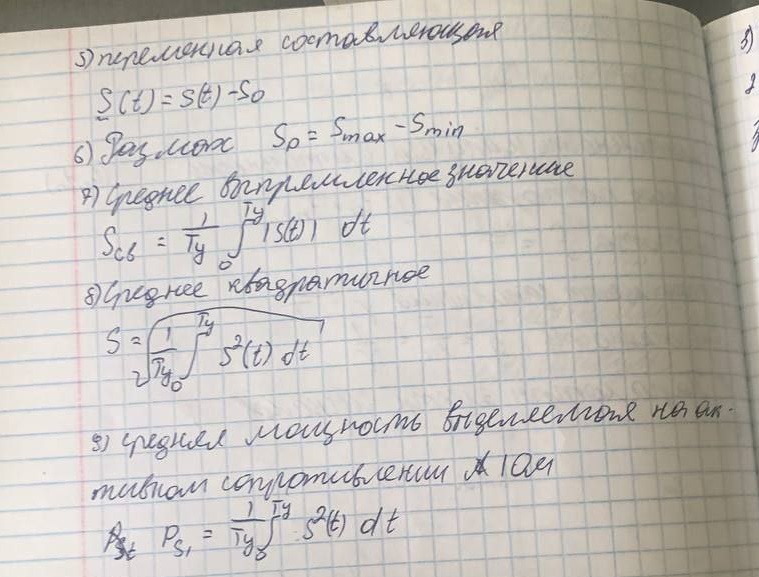 5) переменная составляющая
S(t) = s(t) - S₀
6) Размах Sр = Smax - Smin
7) Среднее выпрямленное значение
Sсв = 1/Ty ∫₀^Ty |S(t)| dt
8) Среднее квадратичное
S = √(1/Ty ∫₀^Ty S²(t) dt)
9) средняя мощность выделяемая на ак-
тивном сопротивлении 1 Ом
PS₁ = 1/Ty ∫₀^Ty S²(t) dt